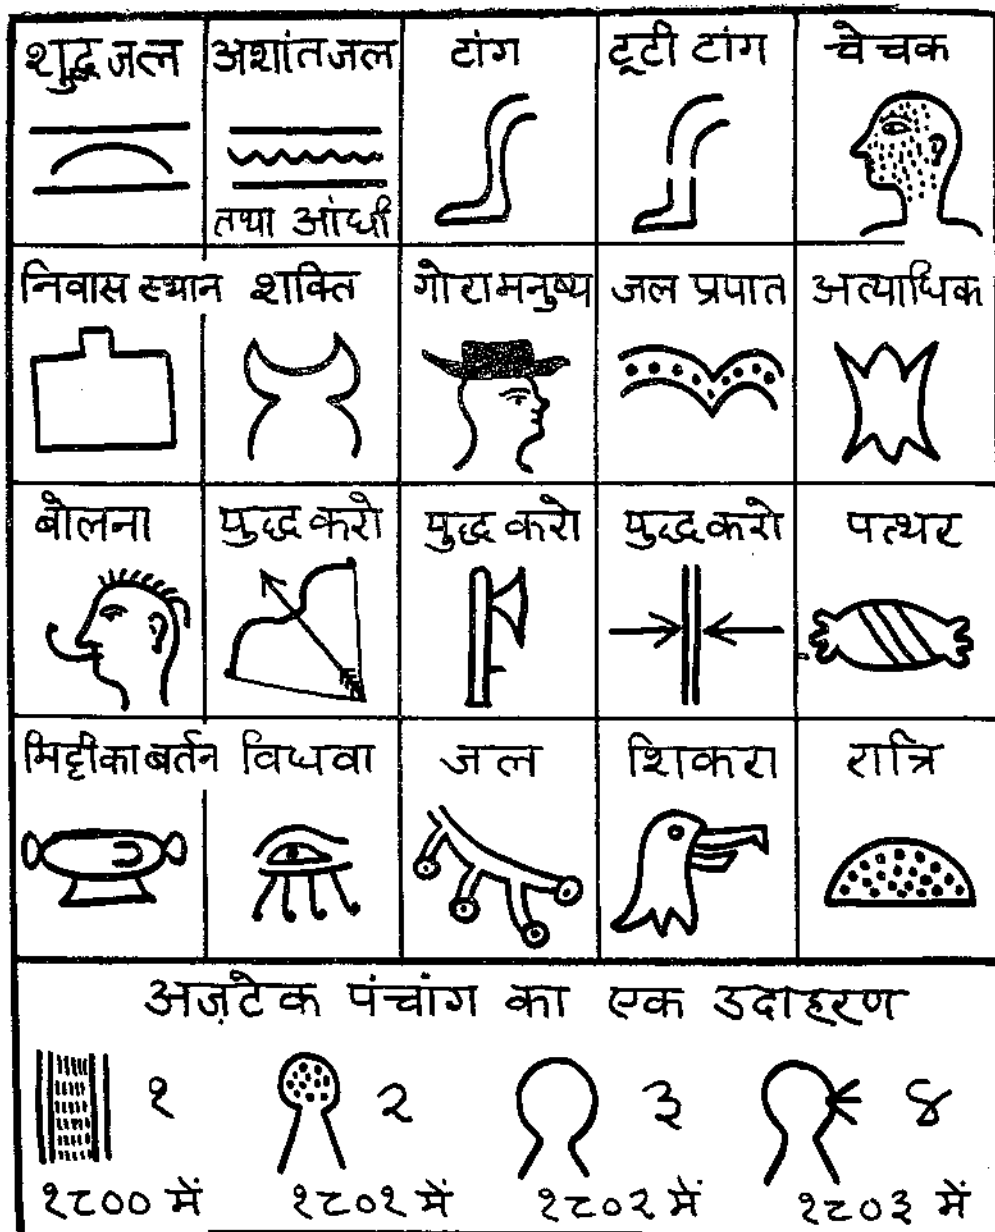 शुद्ध जल अशांत जल टांग टूटी टांग चेचक
तथा आंधी
निवास स्थान शक्ति गोरा मनुष्य जल प्रपात अत्याधिक
बोलना युद्ध करो युद्ध करो युद्ध करो पत्थर
मिट्टी का बर्तन विधवा जल शिकरा रात्रि
अज़टेक पंचांग का एक उदाहरण
१ २ ३ ४
१८०० में १८०१ में १८०२ में १८०३ में